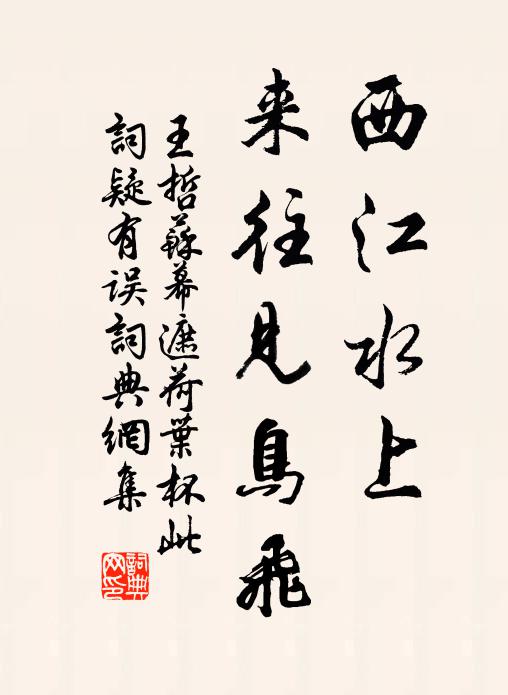 西江水上
来往見鳥飛
王哲蘇幕遮荷葉杯此
詞疑有误詞典網集
詞典網印